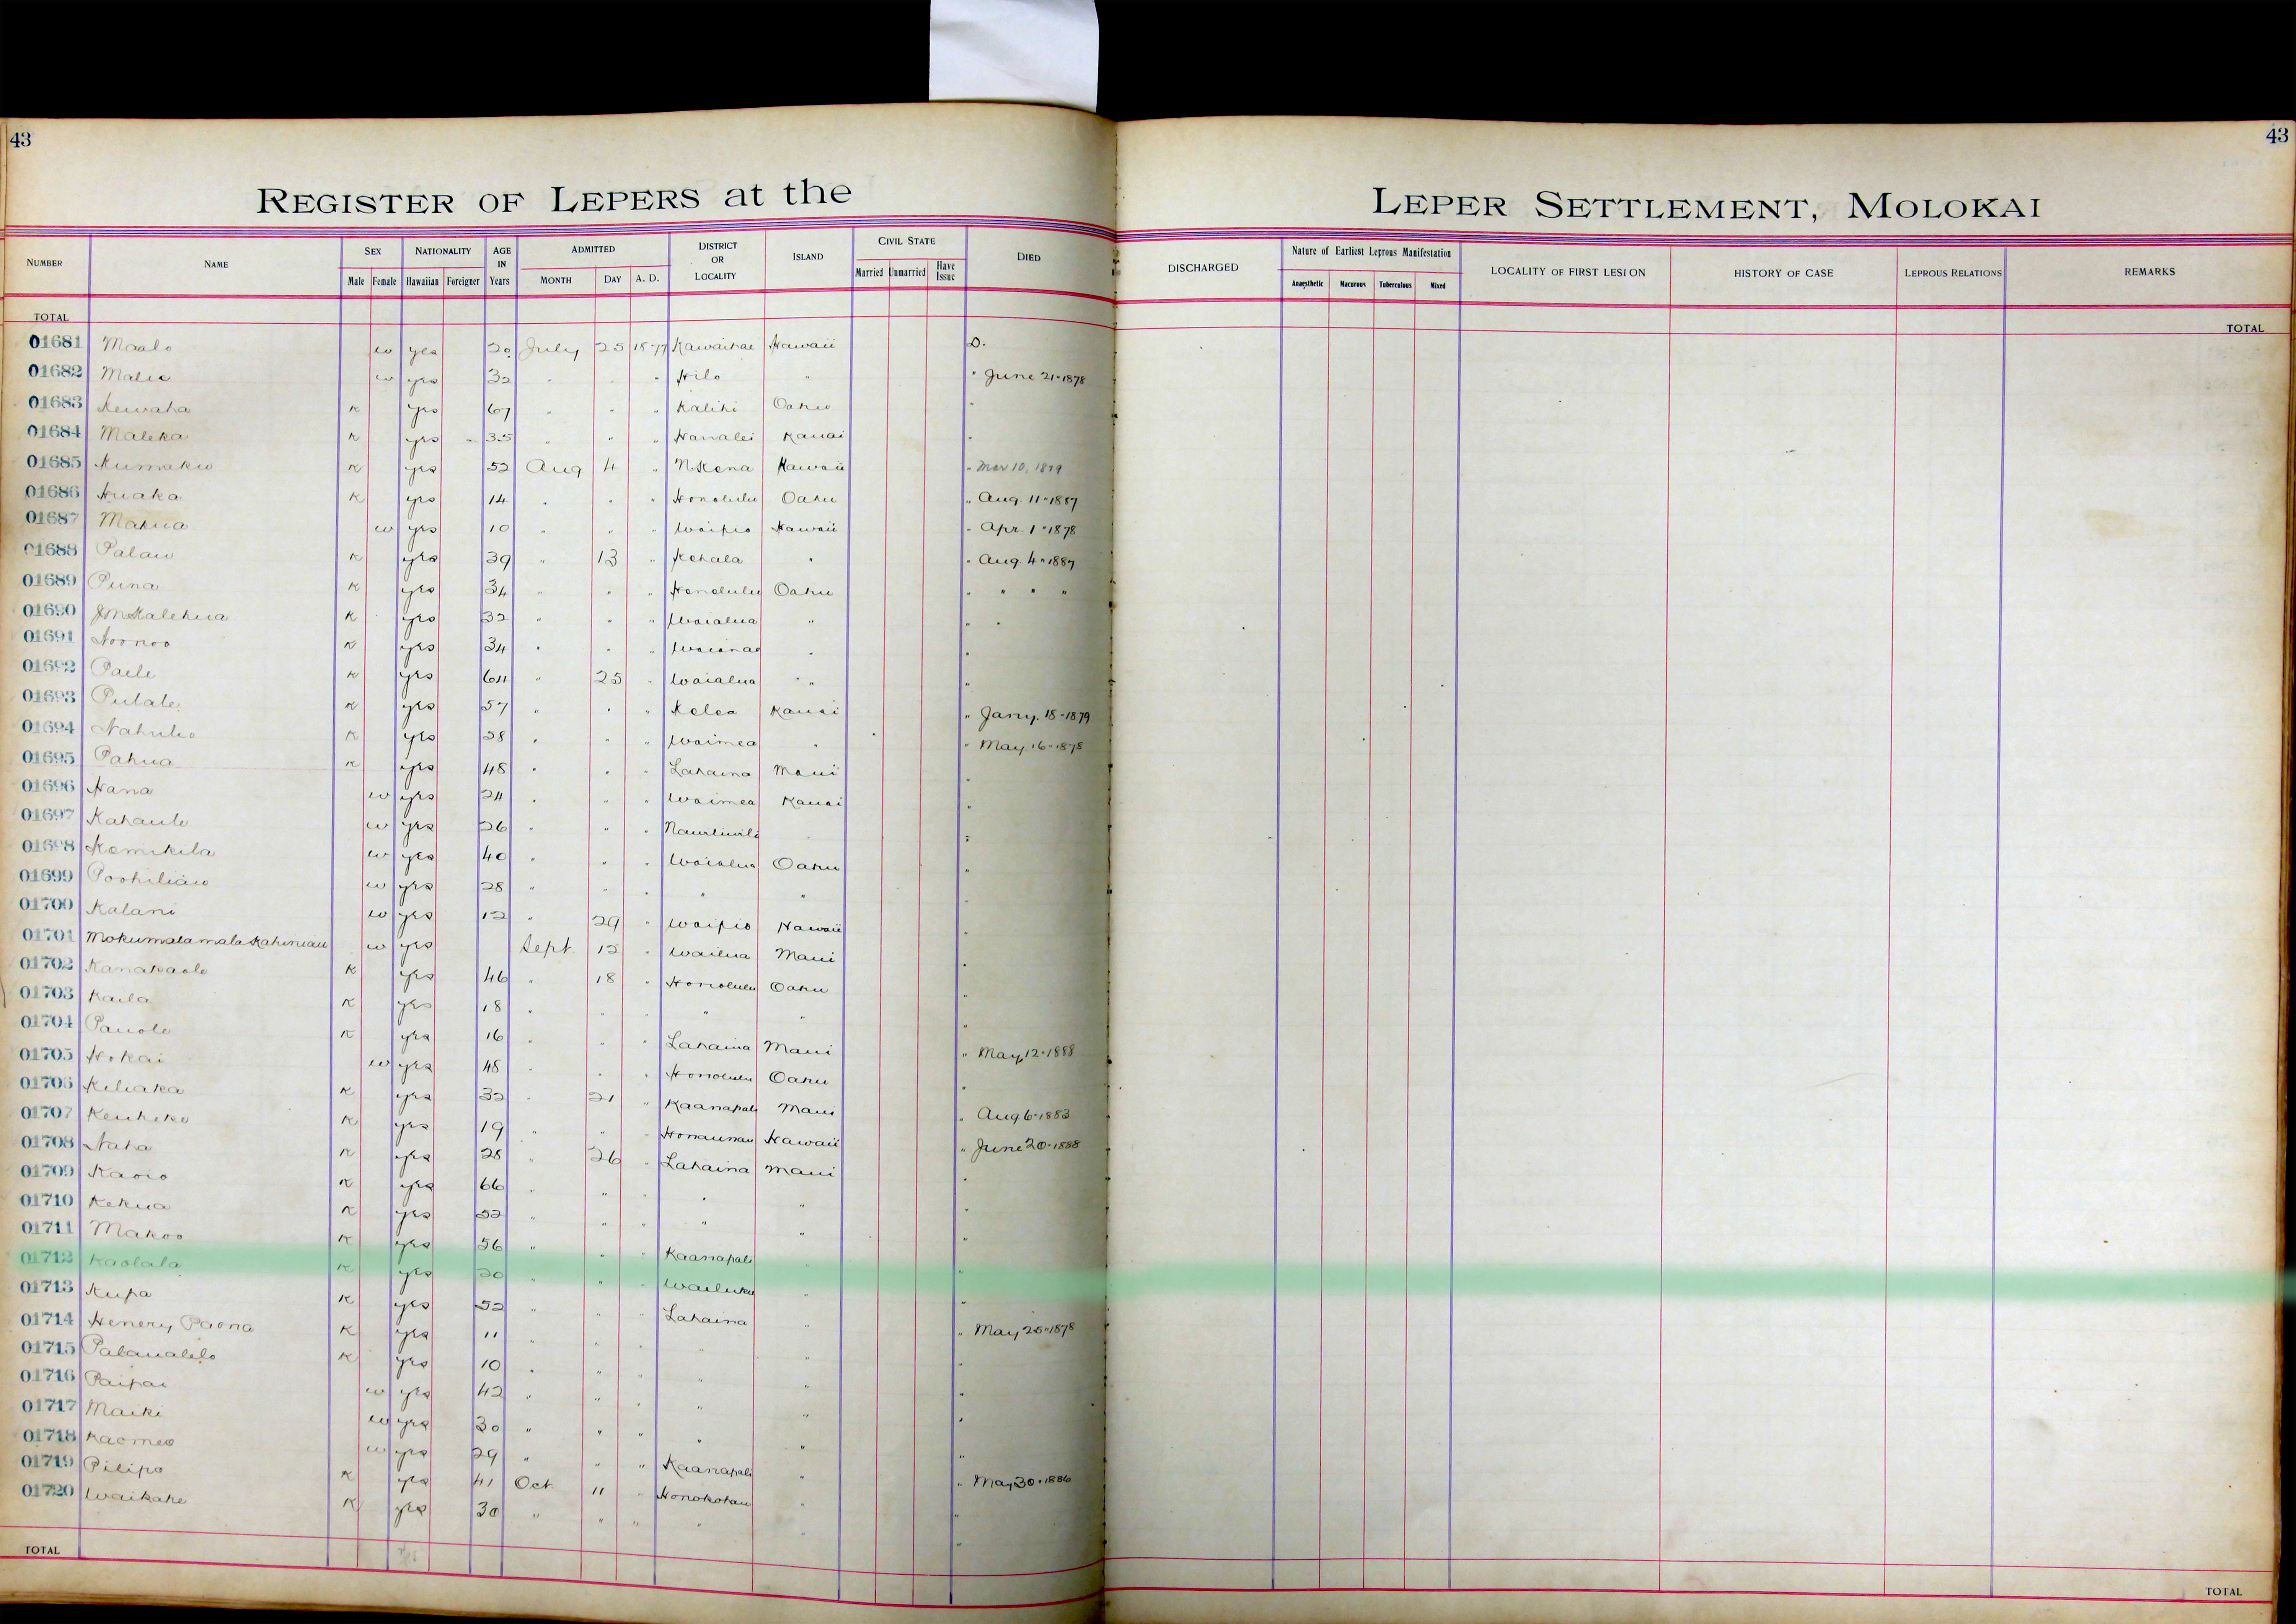 43
43
REGISTER OF LEPERS at the
LEPER SETTLEMENT, MOLOKAI
NUMBER NAME SEX Male Female NATIONALITY Hawaiian Foreigner AGE IN Years ADMITTED MONTH DAY A. D. DISTRICT OR LOCALITY ISLAND CIVIL STATE Married Unmarried Have Issue DIED
DISCHARGED Nature of Earliest Leprous Manifestation Anaesthetic Macurous Tuberculous Mixed LOCALITY OF FIRST LESION HISTORY OF CASE LEPROUS RELATIONS REMARKS
TOTAL
TOTAL
01681 Maalo w yes 20 July 25 1877 Kawaihae Hawaii D.
01682 Malie w yes 32 " " " Hilo " " June 21-1878
01683 Kewaha K yes 67 " " " Kalihi Oahu "
01684 Maleka K yes 35 " " " Hanalei Kauai "
01685 Kumaku K yes 52 Aug 4 " N Kona Hawaii " Mar 10, 1879
01686 Huaka K yes 14 " " " Honolulu Oahu " Aug. 11-1887
01687 Makua w yes 10 " " " Waipio Hawaii " Apr. 1-1878
01688 Palau K yes 39 " 13 " Kohala " " Aug. 4-1887
01689 Puna K yes 34 " " " Honolulu Oahu " " " "
01690 J M Kalehua K yes 32 " " " Waialua " " "
01691 Noonoo K yes 34 " " " Waianae " "
01692 Paele K yes 64 " 25 " Waialua " "
01693 Pulale K yes 57 " " " Kolea Kauai " Jany. 18-1879
01694 Nahulu K yes 28 " " " Waimea " " May. 16-1878
01695 Pahua K yes 48 " " " Lahaina Maui "
01696 Hana w yes 24 " " " Waimea Kauai "
01697 Kahaule w yes 26 " " " Nawiliwili "
01698 Kamikila w yes 40 " " " Waialua Oahu "
01699 Poohiliau w yes 28 " " " " "
01700 Kalani w yes 12 " 29 " Waipio Hawaii "
01701 Mokumalamala Kahiniau w yes Sept 12 " Wailua Maui "
01702 Kanakaole K yes 46 " 18 " Honolulu Oahu "
01703 Kaila K yes 18 " " " " " "
01704 Pauole K yes 16 " " " Lahaina Maui " May 12-1888
01705 Hokai w yes 48 " " " Honolulu Oahu "
01706 Keliaka K yes 32 " 21 " Kaanapali Maui " Aug 6-1883
01707 Keuheke K yes 19 " " " Honaunau Hawaii " June 20-1888
01708 Naha K yes 28 " 26 " Lahaina Maui "
01709 Kaoio K yes 66 " " " " " "
01710 Kekua K yes 52 " " " " " "
01711 Makoo K yes 56 " " " Kaanapali " "
01712 Kaolala K yes 20 " " " Wailuku " "
01713 Kupa K yes 52 " " " Lahaina " " May 25-1878
01714 Henery Paona K yes 11 " " " " " "
01715 Palaualelo K yes 10 " " " " " "
01716 Paipai w yes 42 " " " " " "
01717 Maiki w yes 30 " " " " " "
01718 Kaomea w yes 29 " " " Kaanapali " " May 30-1886
01719 Pilipo K yes 41 Oct 11 " Honokohau " "
01720 Waikahe K yes 30 " " " " " "
TOTAL
TOTAL